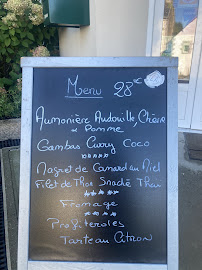 Menu 28€
Aumonière Andouille, Chèvre
& Pomme
Gambas Curry Coco
*****
Magret de Canard au Miel
Filet de Thon Snacké Thaï
****
Fromage
****
Profiteroles
Tarte au Citron